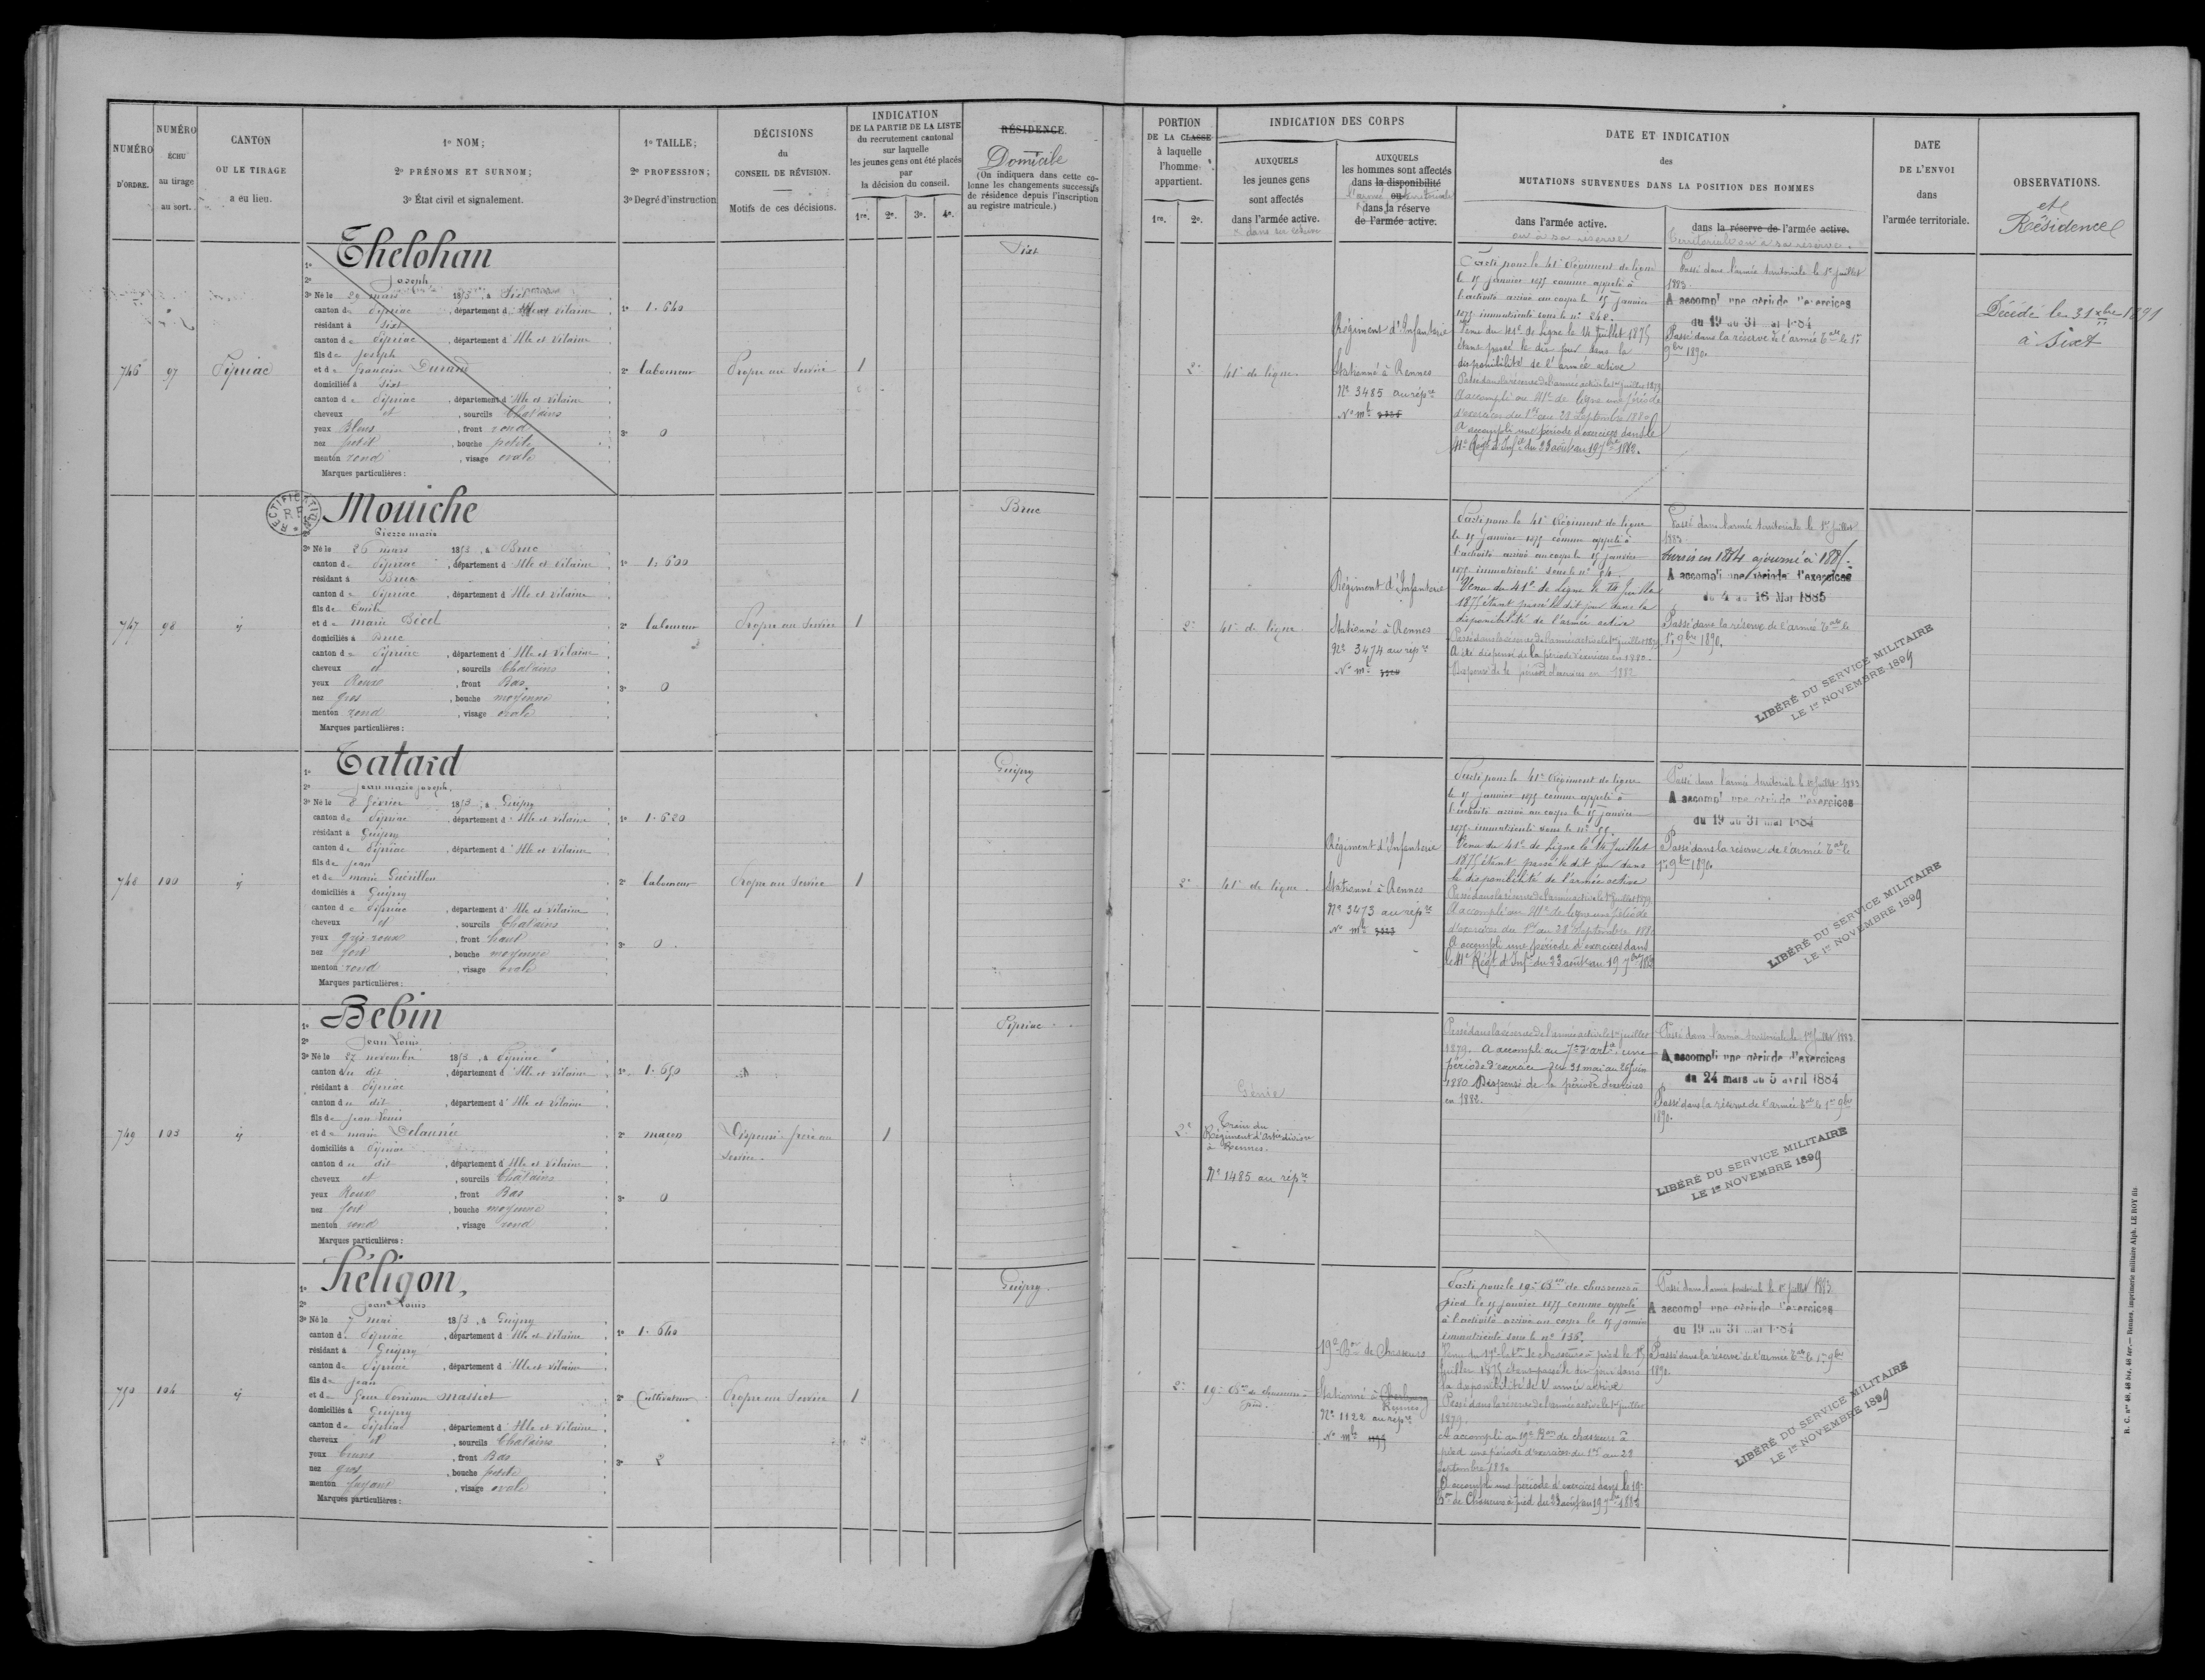 NUMÉRO
D'ORDRE.
NUMÉRO
ÉCHU
au tirage
au sort.
CANTON
OU LE TIRAGE
a eu lieu.
1º NOM;
2º PRÉNOMS ET SURNOM;
3º État civil et signalement.
1º TAILLE;
2º PROFESSION;
3º Degré d'instruction
DÉCISIONS
du
CONSEIL DE RÉVISION.
Motifs de ces décisions.
INDICATION
DE LA PARTIE DE LA LISTE
du recrutement cantonal
sur laquelle
les jeunes gens ont été placés
par
la décision du conseil.
1re. 2e. 3e. 4e.
RÉSIDENCE.
Domicile
(On indiquera dans cette co-
lonne les changements successifs
de résidence depuis l'inscription
au registre matricule.)
PORTION
DE LA CLASSE
à laquelle
l'homme
appartient.
1re. 2e.
INDICATION DES CORPS
AUXQUELS
les jeunes gens
sont affectés
dans l'armée active.
AUXQUELS
les hommes sont affectés
dans la disponibilité
ou
dans la réserve
de l'armée active.
DATE ET INDICATION
des
MUTATIONS SURVENUES DANS LA POSITION DES HOMMES
dans l'armée active.
ou à sa réserve
dans la réserve de l'armée active.
territoriale ou à sa réserve.
DATE
DE L'ENVOI
dans
l'armée territoriale.
OBSERVATIONS.
et
Résidence
746
97
Pipriac
1º Thelohan
2º Joseph
3º Né le 29 mars 1853, à Sixt
canton de Pipriac, département d'Ille et Vilaine
résidant à Sixt
canton de Pipriac, département d'Ille et Vilaine
fils de Joseph
et de françoise Durand
domiciliés à Sixt
canton de Pipriac, département d'Ille et Vilaine
cheveux et, sourcils Chatains
yeux Bleus, front rond
nez petit, bouche petite
menton rond, visage ovale
Marques particulières:
1º 1.640
2º laboureur
3º 0
Propre au Service
1
Sixt
2e
41e de ligne
Régiment d'Infanterie
Stationné à Rennes
Nº 3485 au répre
Nº mle
Parti pour le 41e Régiment de ligne
le 15 janvier 1875 comme appelé à
l'activité arrivé au corps le 15 janvier
1875 immatriculé sous le nº 242.
Venu du 41e de Ligne le 14 Juillet 1875
étant passé le dit jour dans la
disponibilité de l'armée active
Passé dans la réserve de l'armée active le 1er juillet 1879
A accompli au 41e de ligne une période
d'exercices du 1er au 28 Septembre 1880
A accompli une période d'exercices dans le
41e Régt d'Infie du 23 août au 19 7bre 1882.
Passé dans l'armée territoriale le 1er juillet
1883.
A accompli une période d'exercices
du 19 au 31 mai 1884
Passé dans la réserve de l'armée tale le 1er
9bre 1890.
Décédé le 31 xbre 1891
à Sixt
747
98
ij
RECTIFICATION
Mouiche
Pierre marie
3º Né le 26 mars 1853, à Bruc
canton de Pipriac, département d'Ille et Vilaine
résidant à Bruc
canton de Pipriac, département d'Ille et Vilaine
fils de Emile
et de marie Picel
domiciliés à Bruc
canton de Pipriac, département d'Ille et Vilaine
cheveux et, sourcils Chatains
yeux Roux, front Bas
nez gros, bouche moyenne
menton rond, visage ovale
Marques particulières:
1º 1.600
2º laboureur
3º 0
Propre au Service
1
Bruc
2e
41e de ligne
Régiment d'Infanterie
Stationné à Rennes
Nº 3474 au répre
Nº mle
Parti pour le 41e Régiment de ligne
le 15 janvier 1875 comme appelé à
l'activité arrivé au corps le 15 janvier
1875 immatriculé sous le nº 84.
Venu du 41e de Ligne le 14 Juillet
1875 étant passé le dit jour dans la
disponibilité de l'armée active
Passé dans la réserve de l'armée active le 1er juillet 1879
A été dispensé de la période d'exercices en 1880.
Dispensé de la période d'exercices en 1882
Passé dans l'armée territoriale le 1er juillet
1883.
Sursis en 1884 ajourné à 1885.
A accompli une période d'exercices
du 4 au 16 Mai 1885
Passé dans la réserve de l'armée tale le
1er 9bre 1890.
LIBÉRÉ DU SERVICE MILITAIRE
LE 1er NOVEMBRE 1899
748
100
ij
1º Tatard
2º Jean marie joseph
3º Né le 8 février 1853, à Guipry
canton de Pipriac, département d'Ille et Vilaine
résidant à Guipry
canton de Pipriac, département d'Ille et Vilaine
fils de Jean
et de marie Guérillon
domiciliés à Guipry
canton de Pipriac, département d'Ille et Vilaine
cheveux et, sourcils Chatains
yeux gris roux, front haut
nez fort, bouche moyenne
menton rond, visage ovale
Marques particulières:
1º 1.620
2º laboureur
3º 0
Propre au Service
1
Guipry
2e
41e de ligne
Régiment d'Infanterie
Stationné à Rennes
Nº 3473 au répre
Nº mle
Parti pour le 41e Régiment de ligne
le 15 janvier 1875 comme appelé à
l'activité arrivé au corps le 15 janvier
1875 immatriculé sous le nº 55.
Venu du 41e de Ligne le 14 Juillet
1875 étant passé le dit jour dans
la disponibilité de l'armée active
Passé dans la réserve de l'armée active le 1er juillet 1879
A accompli au 41e de ligne une période
d'exercices du 1er au 28 Septembre 1880
A accompli une période d'exercices dans
le 41e Régt d'Infie du 23 août au 19 7bre 1882
Passé dans l'armée territoriale le 1er juillet 1883
A accompli une période d'exercices
du 19 au 31 mai 1884
Passé dans la réserve de l'armée tale le
1er 9bre 1890
LIBÉRÉ DU SERVICE MILITAIRE
LE 1er NOVEMBRE 1899
749
103
ij
1º Bebin
2º Jean Louis
3º Né le 27 novembre 1853, à Pipriac
canton du dit, département d'Ille et Vilaine
résidant à Pipriac
canton du dit, département d'Ille et Vilaine
fils de Jean Louis
et de marie Delaunée
domiciliés à Pipriac
canton du dit, département d'Ille et Vilaine
cheveux et, sourcils Chatains
yeux Roux, front Bas
nez fort, bouche moyenne
menton rond, visage rond
Marques particulières:
1º 1.650
2º maçon
3º 0
Dispensé frère au
Service.
1
Pipriac
2e
Génie
Train du
Régiment d'Artie division
à Rennes.
Nº 1485 au répre
Passé dans la réserve de l'armée active le 1er juillet
1879. A accompli au 7e d'artie une
période d'exercice du 31 mai au 26 juin
1880 Dispensé de la période d'exercices
en 1882.
Passé dans l'armée territoriale le 1er Juillet 1883.
A accompli une période d'exercices
du 24 mars au 5 avril 1884
Passé dans la réserve de l'armée tale le 1er 9bre
1890.
LIBÉRÉ DU SERVICE MILITAIRE
LE 1er NOVEMBRE 1899
750
104
ij
1º Héligon,
2º Jean Louis
3º Né le 7 mai 1853, à Guipry
canton de Pipriac, département d'Ille et Vilaine
résidant à Guipry
canton de Pipriac, département d'Ille et Vilaine
fils de Jean
et de massiot
domiciliés à Guipry
canton de Pipriac, département d'Ille et Vilaine
cheveux et, sourcils Chatains
yeux bruns, front Bas
nez gros, bouche petite
menton, visage ovale
Marques particulières:
1º 1.640
2º Cultivateur
3º 2
Propre au Service
1
Guipry
2e
19e Bon de chasseurs à
pied.
19e Bon de Chasseurs
Stationné à Cherbourg
Rennes
Nº 1122 au répre
Nº mle
Parti pour le 19e Bon de chasseurs à
pied le 15 janvier 1875 comme appelé
à l'activité arrivé au corps le 15 janvier
immatriculé sous le nº 136.
Venu du 19e Bon de chasseurs à pied le 15
Juillet 1875 étant passé le dit jour dans
la disponibilité de l'armée active
Passé dans la réserve de l'armée active le 1er juillet
1879.
A accompli au 19e Bon de chasseurs à
pied une période d'exercices du 1er au 28
Septembre 1880
A accompli une période d'exercices dans le 19e
Bon de Chasseurs à pied du 23 août au 19 7bre 1882
Passé dans l'armée territoriale le 1er juillet 1883
A accompli une période d'exercices
du 19 au 31 mai 1884
Passé dans la réserve de l'armée tale le 1er 9bre
1890
LIBÉRÉ DU SERVICE MILITAIRE
LE 1er NOVEMBRE 1899
R. C. nos 48, 48 bis, 48 ter.— Rennes, imprimerie militaire Alph. LE ROY fils